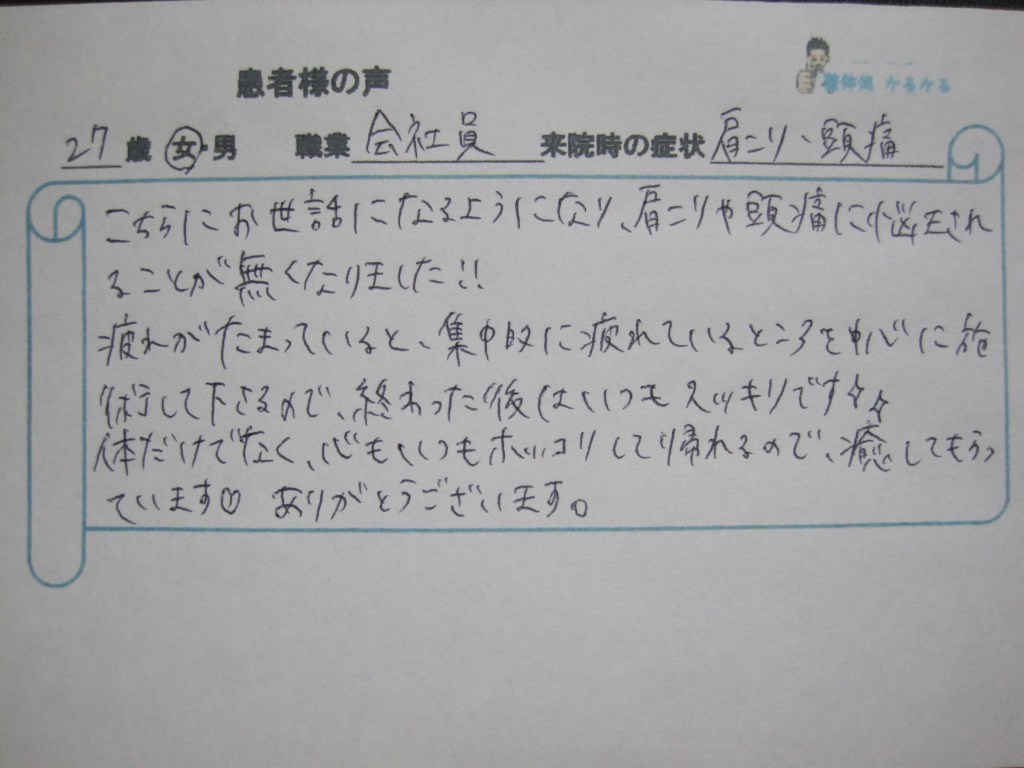 患者様の声
整体処 かるかる
27歳 女・男 職業 会社員 来院時の症状 肩こり、頭痛
こちらにお世話になるようになり、肩こりや頭痛に悩まされ
ることが無くなりました!!
疲れがたまっていると、集中的に疲れているところを中心に施
術して下さるので、終わった後はいつもスッキリです☆☆
体だけでなく、心もいつもホッコリして帰れるので、癒してもらっ
ています♡ ありがとうございます。